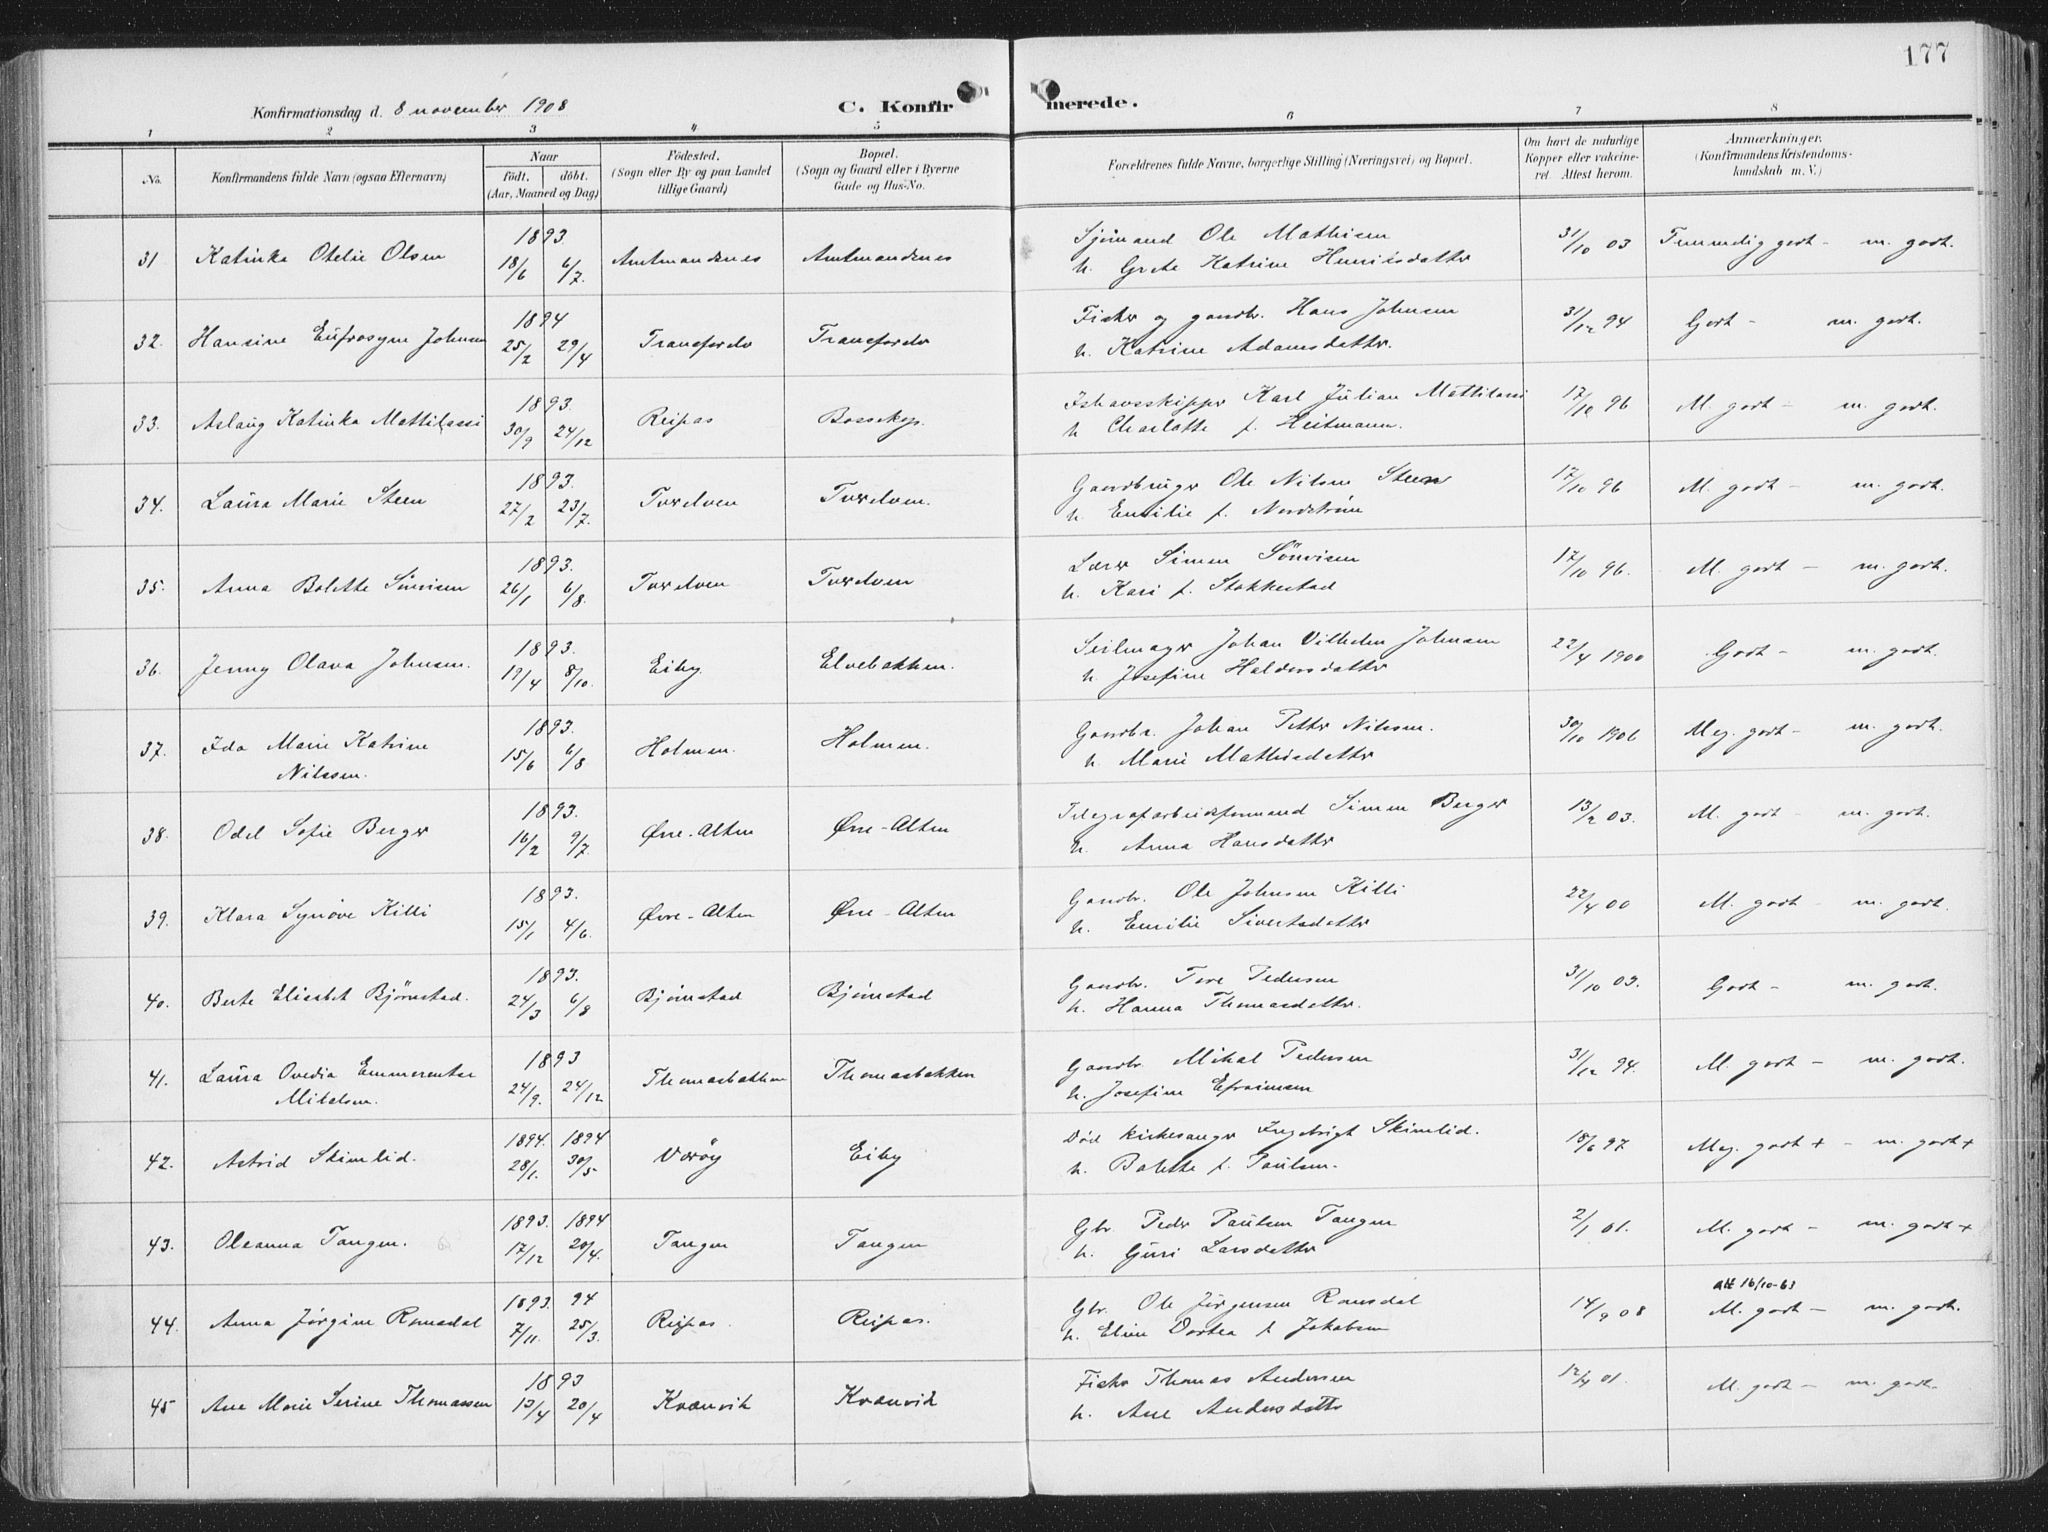 177
Konfirmationsdag d. 8 november 1908
C. Konfirmerede.
1 2 3 4 5 6 7 8
No. Konfirmandens fulde Navn (ogsaa Efternavn) Naar født. døbt. (Aar, Maaned og Dag) Fødested. (Sogn eller By og paa Landet tillige Gaard) Bopæl. (Sogn og Gaard eller i Byerne Gade og Hus-No. Forældrenes fulde Navne, borgerlige Stilling (Næringsvei) og Bopæl. Om havt de naturlige Kopper eller vakcineret. Attest herom. Anmærkninger. (Konfirmandens Kristendomskundskab m. V.)
31 Katinka Otelie Olsen 1893 18/6 6/7. Amtmandsnes Amtmandsnes Sjømand Ole Mathisen 31/10 03 Temmelig godt - m. godt.
h. Grete Katrine Henriksdatter
32. Hansine Eufrosyne Johnsen 1894 25/2 29/4 Tranefjorde Tranefjorde Fisker og gaardbr. Hans Johnsen 31/12 94 Godt - m. godt.
h. Katrine Adamsdatter.
33. Aslaug Katinka Mattilassi 1893. 30/9 24/12 Reipas Bossekop. Ishavsskipper Karl Julian Mattilassi 17/10 96 M. godt - m. godt.
h Charlotte f. Heitmann.
34. Laura Marie Steen 1893. 27/2 23/7. Tverelven Tverelven. Gaardbruger Ole Nilsen Steen 17/10 96 M. godt - m. godt.
h. Emilie f. Nordstrøm
35. Anna Bolette Simisen 1893. 26/1 6/8. Tverelven Tverelven Lærer Simen Sönvisen 17/10 96. M. godt - m. godt.
h. Kari f. Stokkestad
36. Jenny Olava Johnsen. 1893. 19/4 8/10. Eiby. Elvebakken. Seilmager Johan Vilhelm Johnsen 22/4 1900 Godt - m. godt.
h Josefine Haldorsdatter
37. Ida Marie Katrine 1893. 15/6 6/8 Holmen. Holmen. Gaardbr. Johan Petter Nilssen. 30/10 1906 Meg. godt - m. godt.
Nilssen. h Marie Mathisdatter
38. Odel Sofie Berger 1893. 16/2 9/7. Øvre-Alten Øvre-Alten Telegrafarbeidsformand Simon Berger 13/2 03. M. godt - m. godt.
h. Anna Hansdatter
39. Klara Synøve Killi 1893. 15/1 4/6. Øvre-Alten Øvre-Alten Gaardbr. Ole Johnsen Killi 22/4 00 M. godt - m. godt.
h. Emilie Sivertsdatter
40. Berte Elisabet Bjørnstad. 1893. 24/3 6/8 Bjørnstad Bjørnstad Gaardbr. Tore Pedersen 31/10 03. Godt - m. godt.
h. Hanna Thomasdatter.
41. Laura Ovedia Emmerentse 1893 24/9. 24/12 Thomasbakken Thomasbakken Gaardbr. Mikal Pedersen 31/12 94. M. godt - m. godt.
Mikalsen. h. Josefine Efraimsen
42. Astrid Skimlid. 1894. 28/1. 1894 30/5 Værøy Eiby Død kirkesanger Ingebrigt Skimlid. 18/6 97 Meg. godt + - m. godt +
h. Bolette f. Paulsen.
43. Oleanna Tangen. 1893. 17/12 1894 20/4. Tangen Tangen Gbr. Peder Paulsen Tangen 2/1 01. M. godt - m. godt +
h. Guri Larsdatter
att 16/10-63
44. Anna Jørgine Romsdal 1893. 7/11. 94 25/3. Reipas. Reipas. Gbr. Ole Jørgensen Romsdal 14/9 08 M. godt - m. godt.
h. Eline Dortea f Jakobsen
45 Ane Marie Serine Thomassen 1893 13/4 20/4 Kvænvik Kvænvik Fisker Thomas Andersen 12/4 01. M. godt - m. godt.
h. Ane Andersdatter